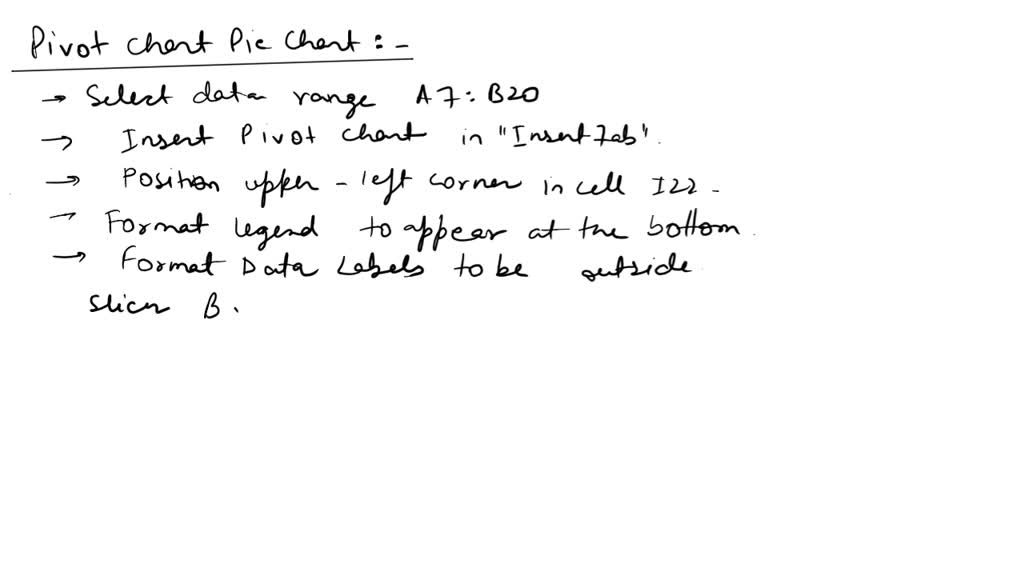 Pivot Chart Pie Chart : -
→ Select data range A7:B20
→ Insert Pivot chart in "Insert Tab".
→ Position upper - left corner in cell I22 -
→ Format legend to appear at the bottom.
→ Format Data Labels to be outside
Slicer B.